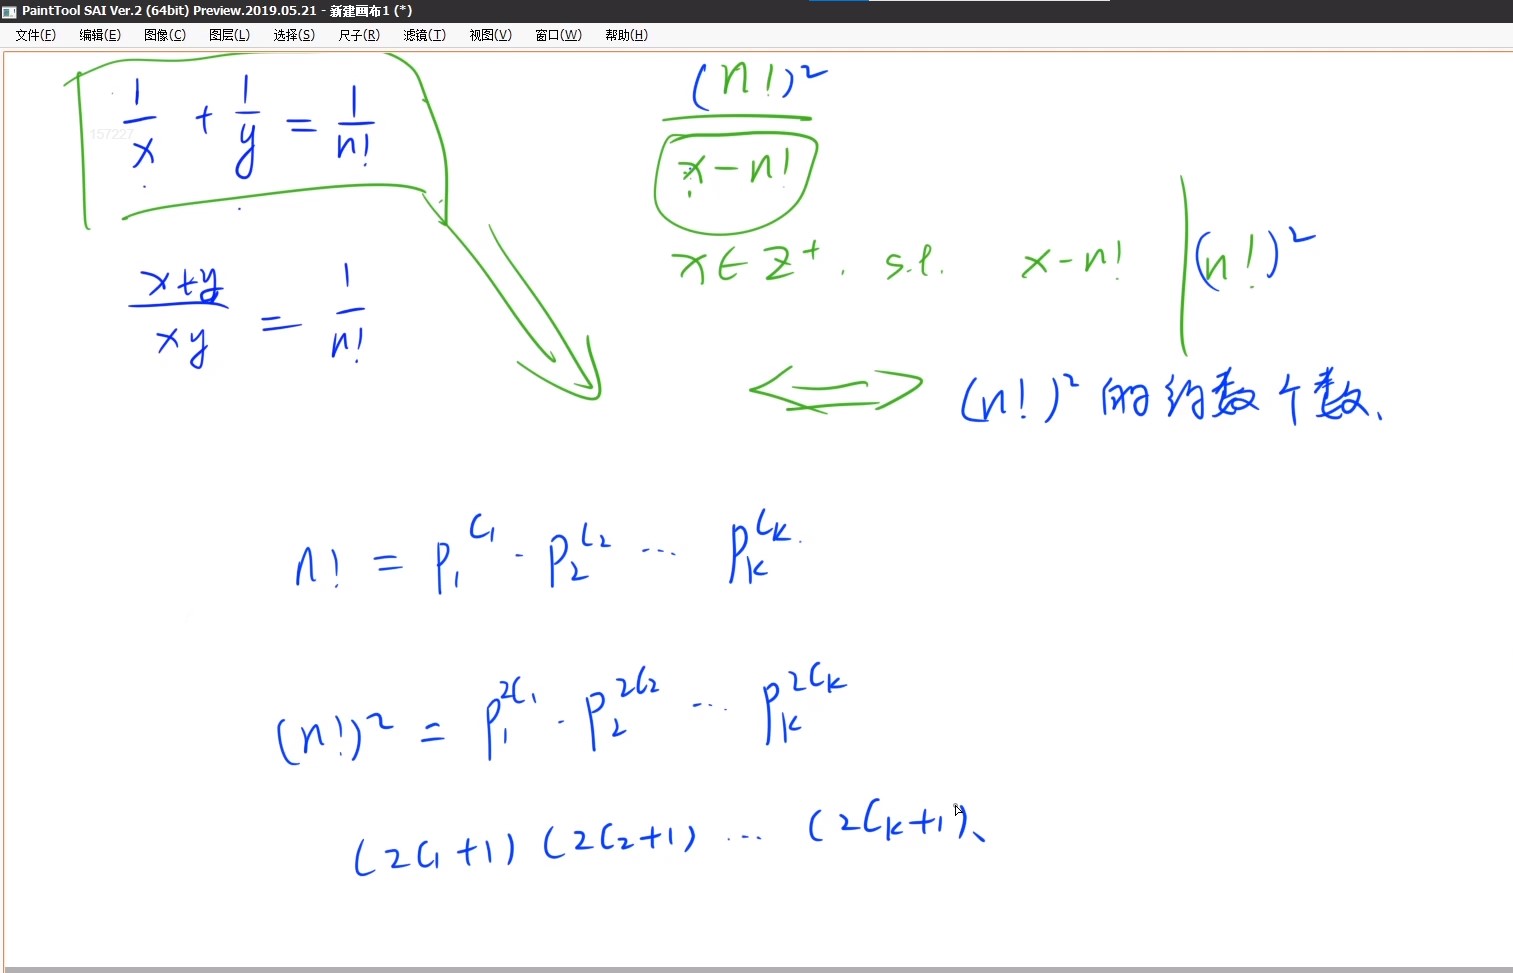 PaintTool SAI Ver.2 (64bit) Preview.2019.05.21 - 新建画布1 (*)
文件(F) 编辑(E) 图像(C) 图层(L) 选择(S) 尺子(R) 滤镜(T) 视图(V) 窗口(W) 帮助(H)
1/x + 1/y = 1/n!
157227
(x+y)/(xy) = 1/n!
(n!)²/(x-n!)
x∈Z⁺. s.t. x-n! | (n!)²
⟺ (n!)² 的约数个数.
n! = p₁^C₁ · p₂^C₂ ... p_k^C_k.
(n!)² = p₁^2C₁ · p₂^2C₂ ... p_k^2C_k
(2C₁+1) (2C₂+1) ... (2C_k+1)、